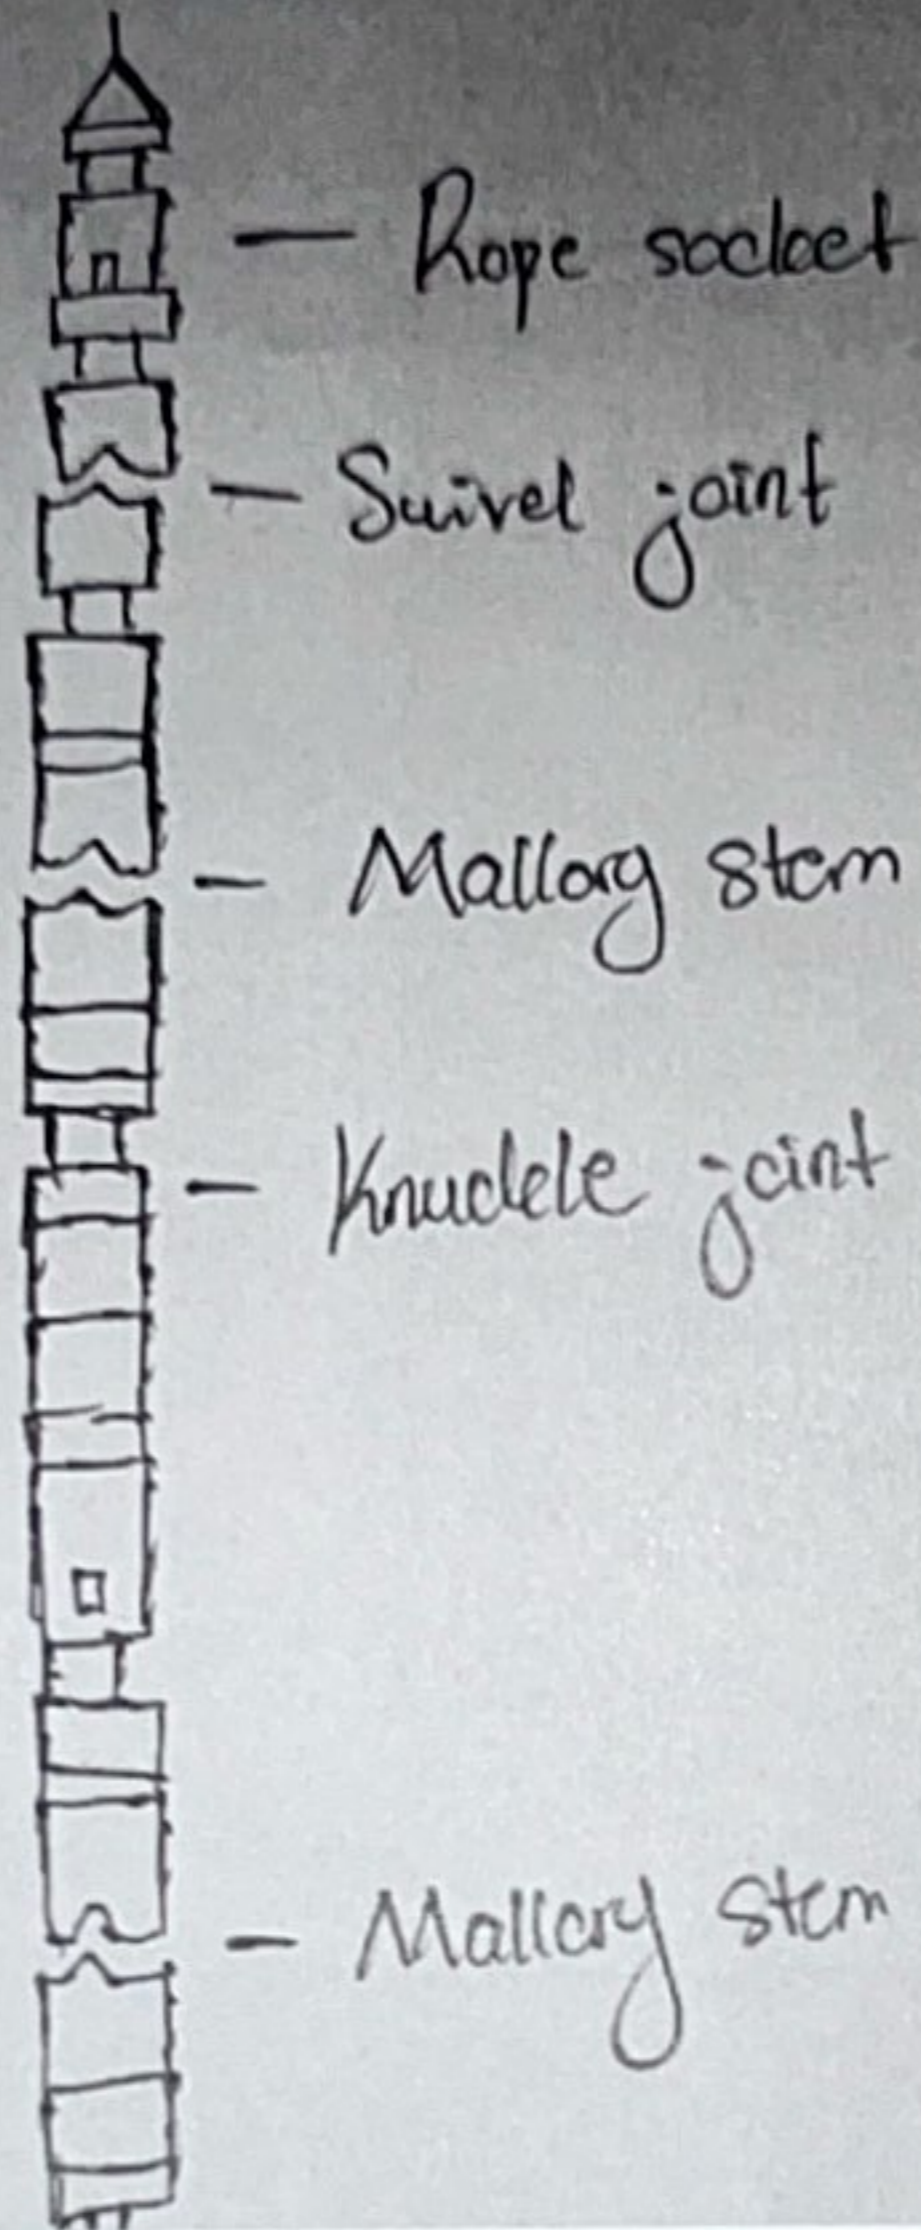 Rope socket
Swivel joint
Mallory stem
Knuckle joint
Mallory stem